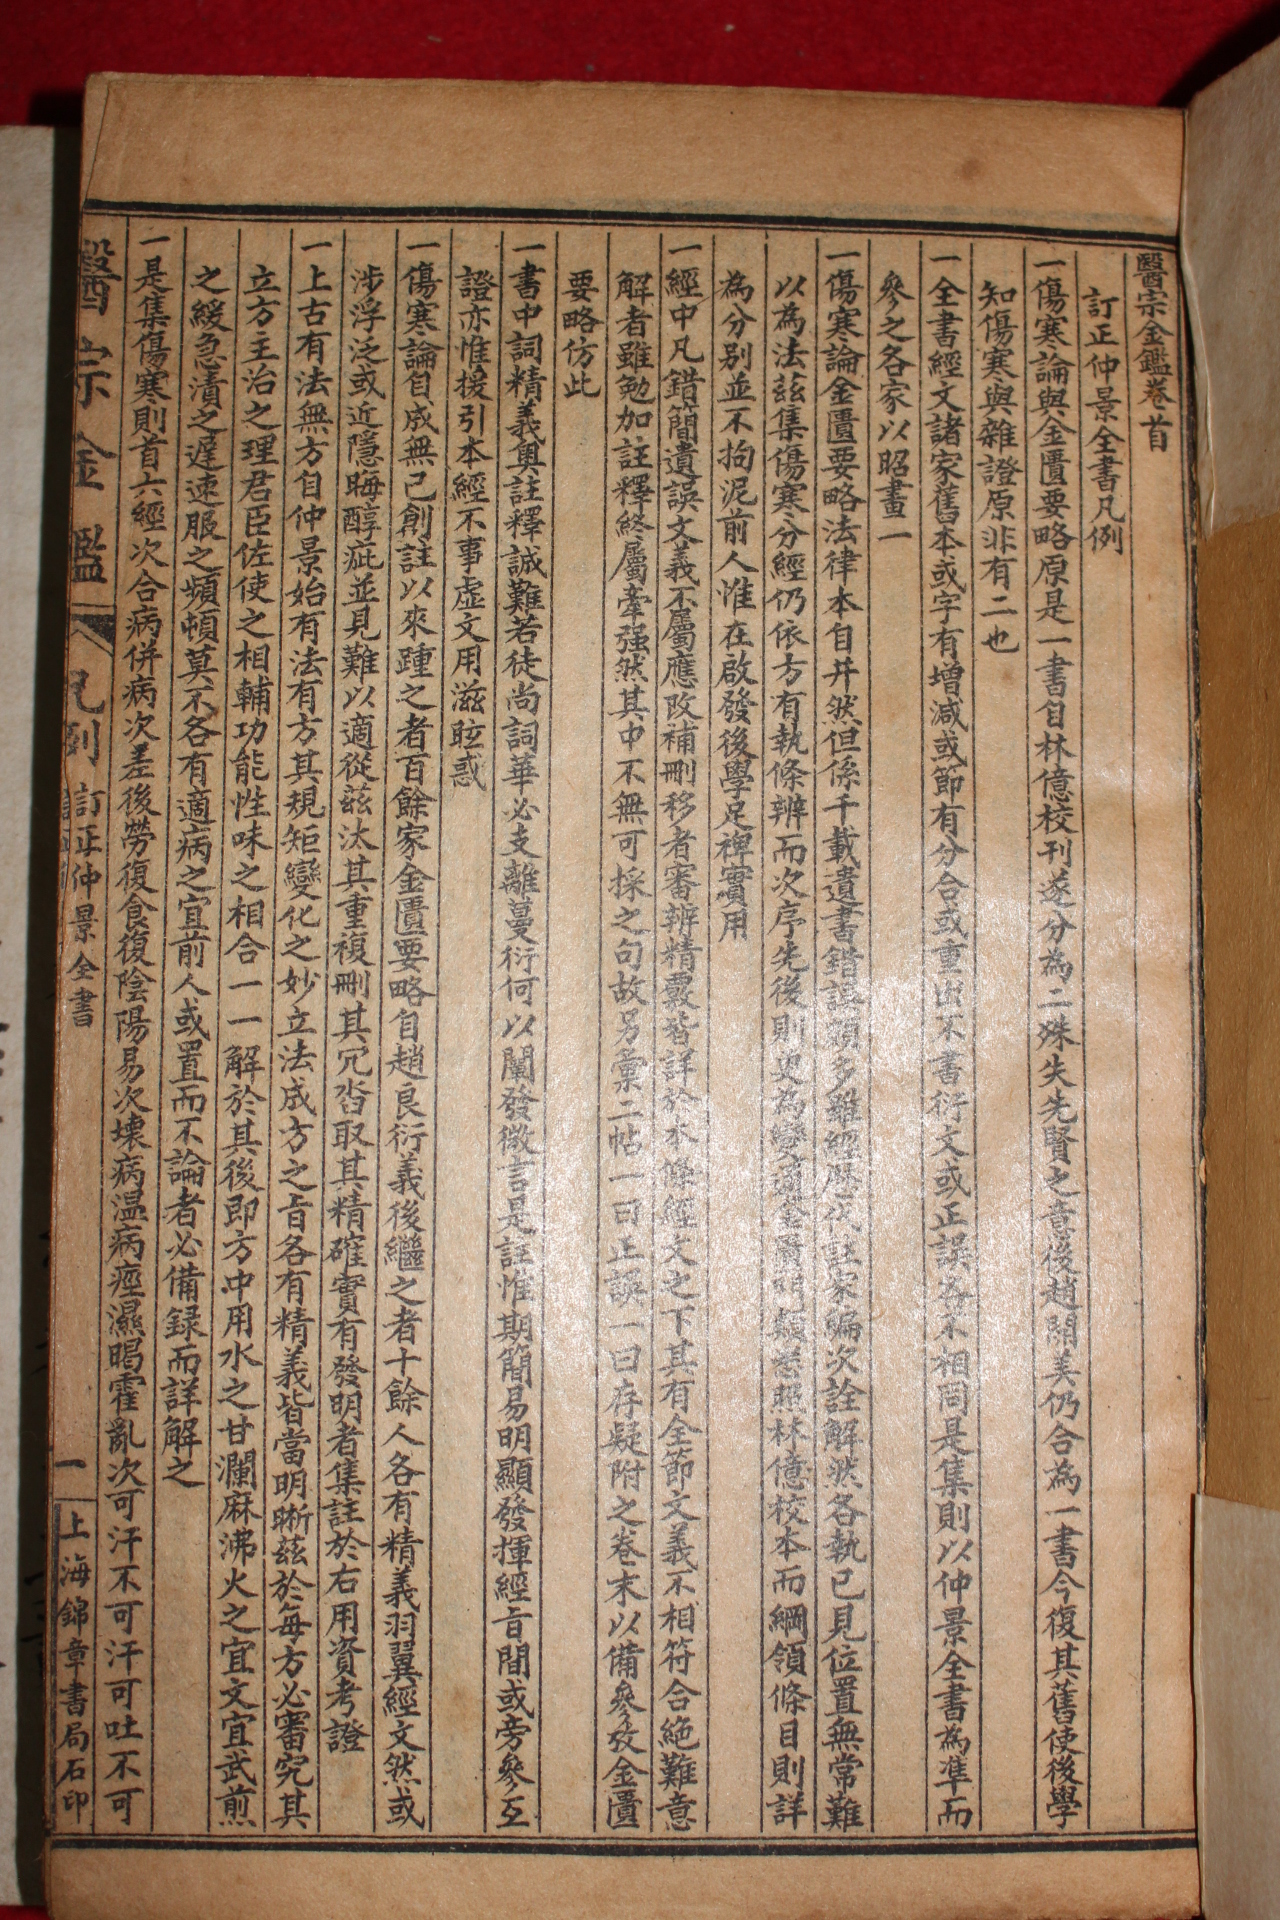 醫宗金鑑卷首
訂正仲景全書凡例
一傷寒論與金匱要略原是一書自林億校刊遂分為二殊失先賢之意後趙開美仍合為一書今復其舊使後學
知傷寒與雜證原非有二也
一全書經文諸家舊本或字有增減或節有分合或重出不書衍文或正誤各不相同是集則以仲景全書為準而
參之各家以昭畫一
一傷寒論金匱要略法律本自井然但係千載遺書錯誤頗多雖經歷代註家編次詮解然各執已見位置無常難
以為法茲集傷寒分經仍依方有執條辨而次序先後則更為變通金匱門類悉照林億校本而綱領條目則詳
為分別並不拘泥前人惟在啟發後學足裨實用
一經中凡錯簡遺誤文義不屬應改補刪移者審辨精覈皆詳於本條經文之下其有全節文義不相符合絶難意
解者雖勉加註釋終屬牽强然其中不無可採之句故另彙二帖一曰正誤一曰存疑附之卷末以備參攷金匱
要略仿此
一書中詞精義奧註釋誠難若徒尚詞華必支離蔓衍何以闡發微言是註惟期簡易明顯發揮經旨間或旁參互
證亦惟援引本經不事虛文用滋眩惑
一傷寒論自成無已創註以來踵之者百餘家金匱要略自趙良衍義後繼之者十餘人各有精義羽翼經文然或
涉浮泛或近隱晦醇疵並見難以適從茲汰其重複刪其冗沓取其精確實有發明者集註於右用資考證
一上古有法無方自仲景始有法有方其規矩變化之妙立法成方之旨各有精義皆當明晰茲於每方必審究其
立方主治之理君臣佐使之相輔功能性味之相合一一解於其後即方中用水之甘瀾麻沸火之宜文宜武煎
之緩急漬之遲速服之頻頓莫不各有適病之宜前人或置而不論者必備録而詳解之
一是集傷寒則首六經次合病併病次差後勞復食復陰陽易次壞病温病痙濕暍霍亂次可汗不可汗可吐不可
醫宗金鑑
凡例
訂正仲景全書
一
上海錦章書局石印